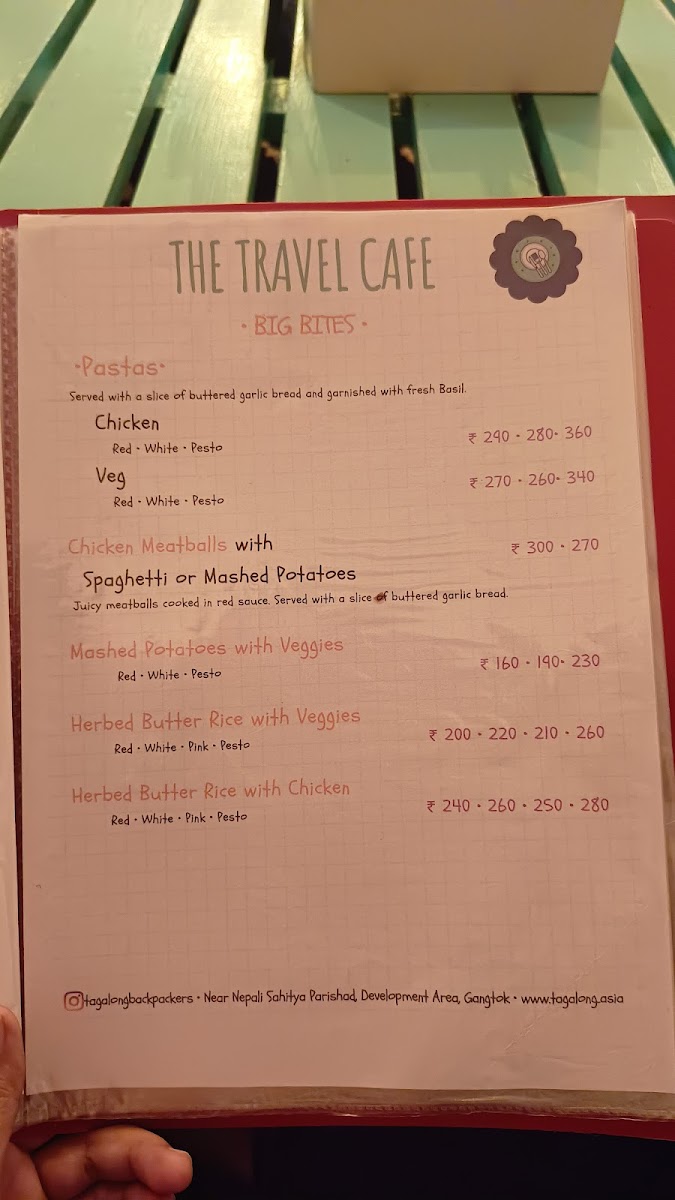 THE TRAVEL CAFE
• BIG BITES •
•Pastas•
Served with a slice of buttered garlic bread and garnished with fresh Basil.
Chicken
Red • White • Pesto
₹ 290 • 280• 360
Veg
Red • White • Pesto
₹ 270 • 260• 340
Chicken Meatballs with
₹ 300 • 270
Spaghetti or Mashed Potatoes
Juicy meatballs cooked in red sauce. Served with a slice of buttered garlic bread.
Mashed Potatoes with Veggies
Red • White • Pesto
₹ 160 • 190• 230
Herbed Butter Rice with Veggies
Red • White • Pink • Pesto
₹ 200 • 220 • 210 • 260
Herbed Butter Rice with Chicken
Red • White • Pink • Pesto
₹ 240 • 260 • 250 • 280
tagalongbackpackers • Near Nepali Sahitya Parishad, Development Area, Gangtok • www.tagalong.asia